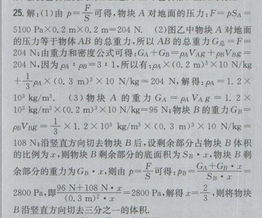 25. 解:(1)由 p=F/S 可得,物块 A 对地面的压力:F=pSA=
5100 Pa×0.2 m×0.2 m=204 N. (2)图乙中物块 A 对地面
的压力等于物体 AB 的总重力,所以 AB 的总重力 G总=F=
204 N;由重力和密度公式可得:GA+GB=ρAVAg+ρBVBg=
204 N,因为 ρA:ρB=3:1,所以有:ρA×(0.2 m)³×10 N/kg
+1/3ρA×(0.3 m)³×10 N/kg=204 N,解得:ρA=1.2×
10³ kg/m³. (3)物块 A 的重力 GA=ρAVAg=1.2×
10³ kg/m³×(0.2 m)³×10 N/kg=96 N;物块 B 的重力 GB=
ρBVBg=1/3×1.2×10³ kg/m³×(0.3 m)³×10 N/kg=
108 N;沿竖直方向切去物块 B 后,设剩余部分占物块 B 体积
的比例为 x,则物块 B 剩余部分的底面积为 SB·x,物块 B 剩
余部分的重力为 GB·x,则由 p=F/S 可得:pB=(GA+GB·x)/(SB·x)=
2800 Pa,即(96 N+108 N·x)/((0.3 m)²·x)=2800 Pa,解得 x=2/3,则将物块
B 沿竖直方向切去三分之一的体积.